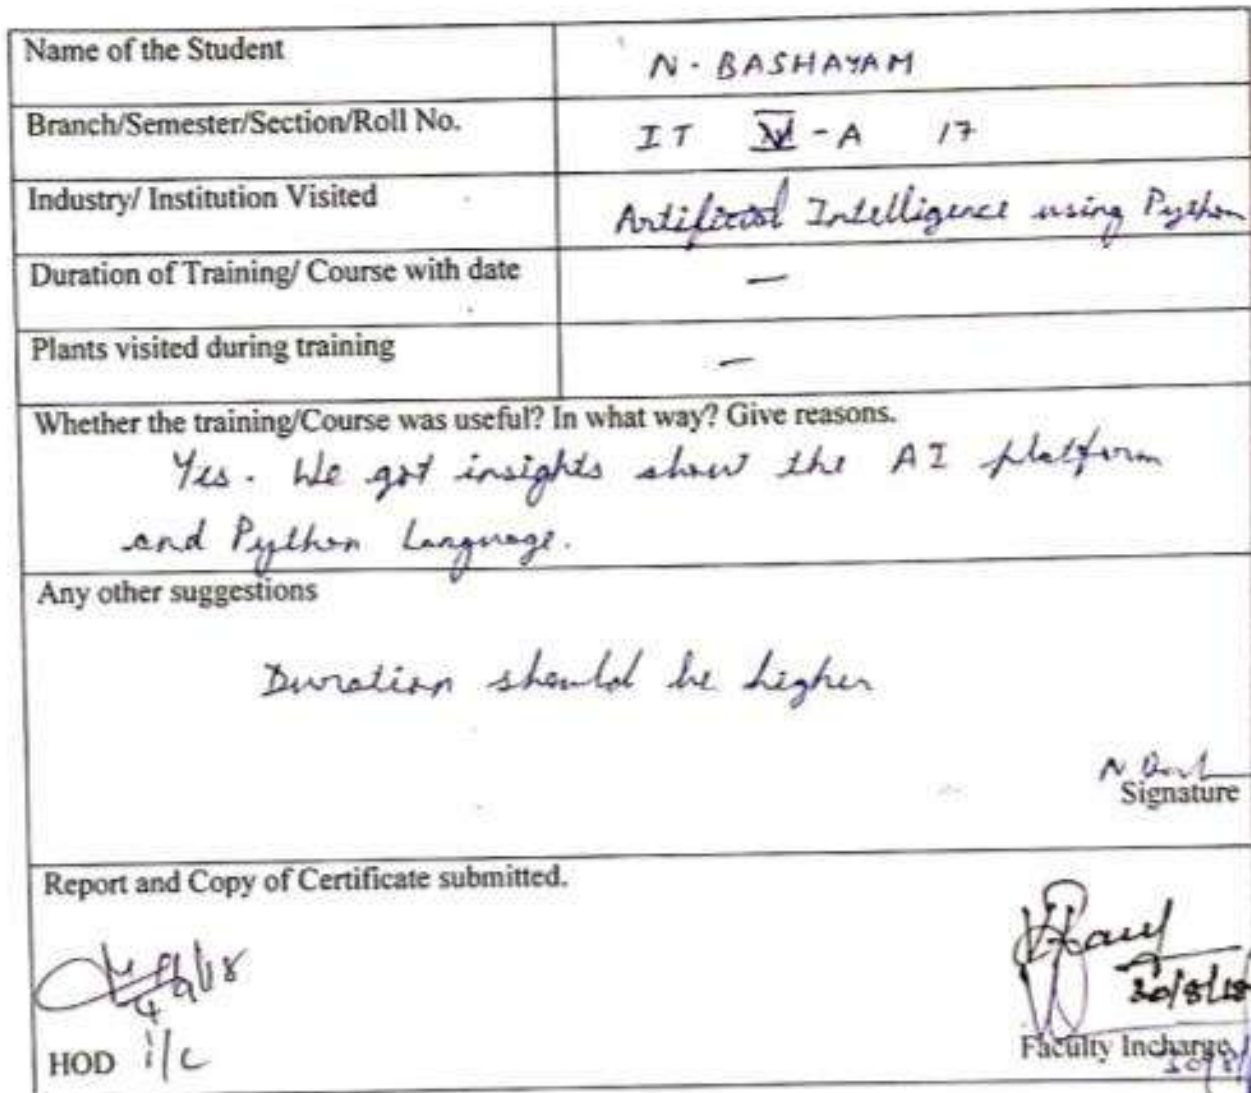 Name of the Student N. BASHAYAM
Branch/Semester/Section/Roll No. IT - A 17
Industry/ Institution Visited Artificial Intelligence using Python
Duration of Training/ Course with date —
Plants visited during training —
Whether the training/Course was useful? In what way? Give reasons.
Yes. We got insights about the AI platform
and Python Language.
Any other suggestions
Duration should be higher
Signature
Report and Copy of Certificate submitted.
30/8/18
HOD i/c
Faculty Incharge